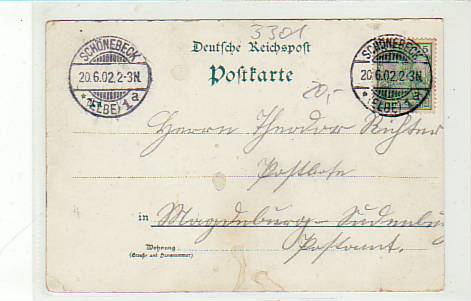 3301
Deutsche Reichspost
Postkarte
SCHÖNEBECK
20.6.02.2-3N.
* (ELBE) 1a
SCHÖNEBECK
20.6.02.2-3N.
* (ELBE) 1a
5
20,-
Herrn Theodor Richter
Postbote
in Magdeburg-Sudenburg
Postamt.
Wohnung
(Straße und Hausnummer)